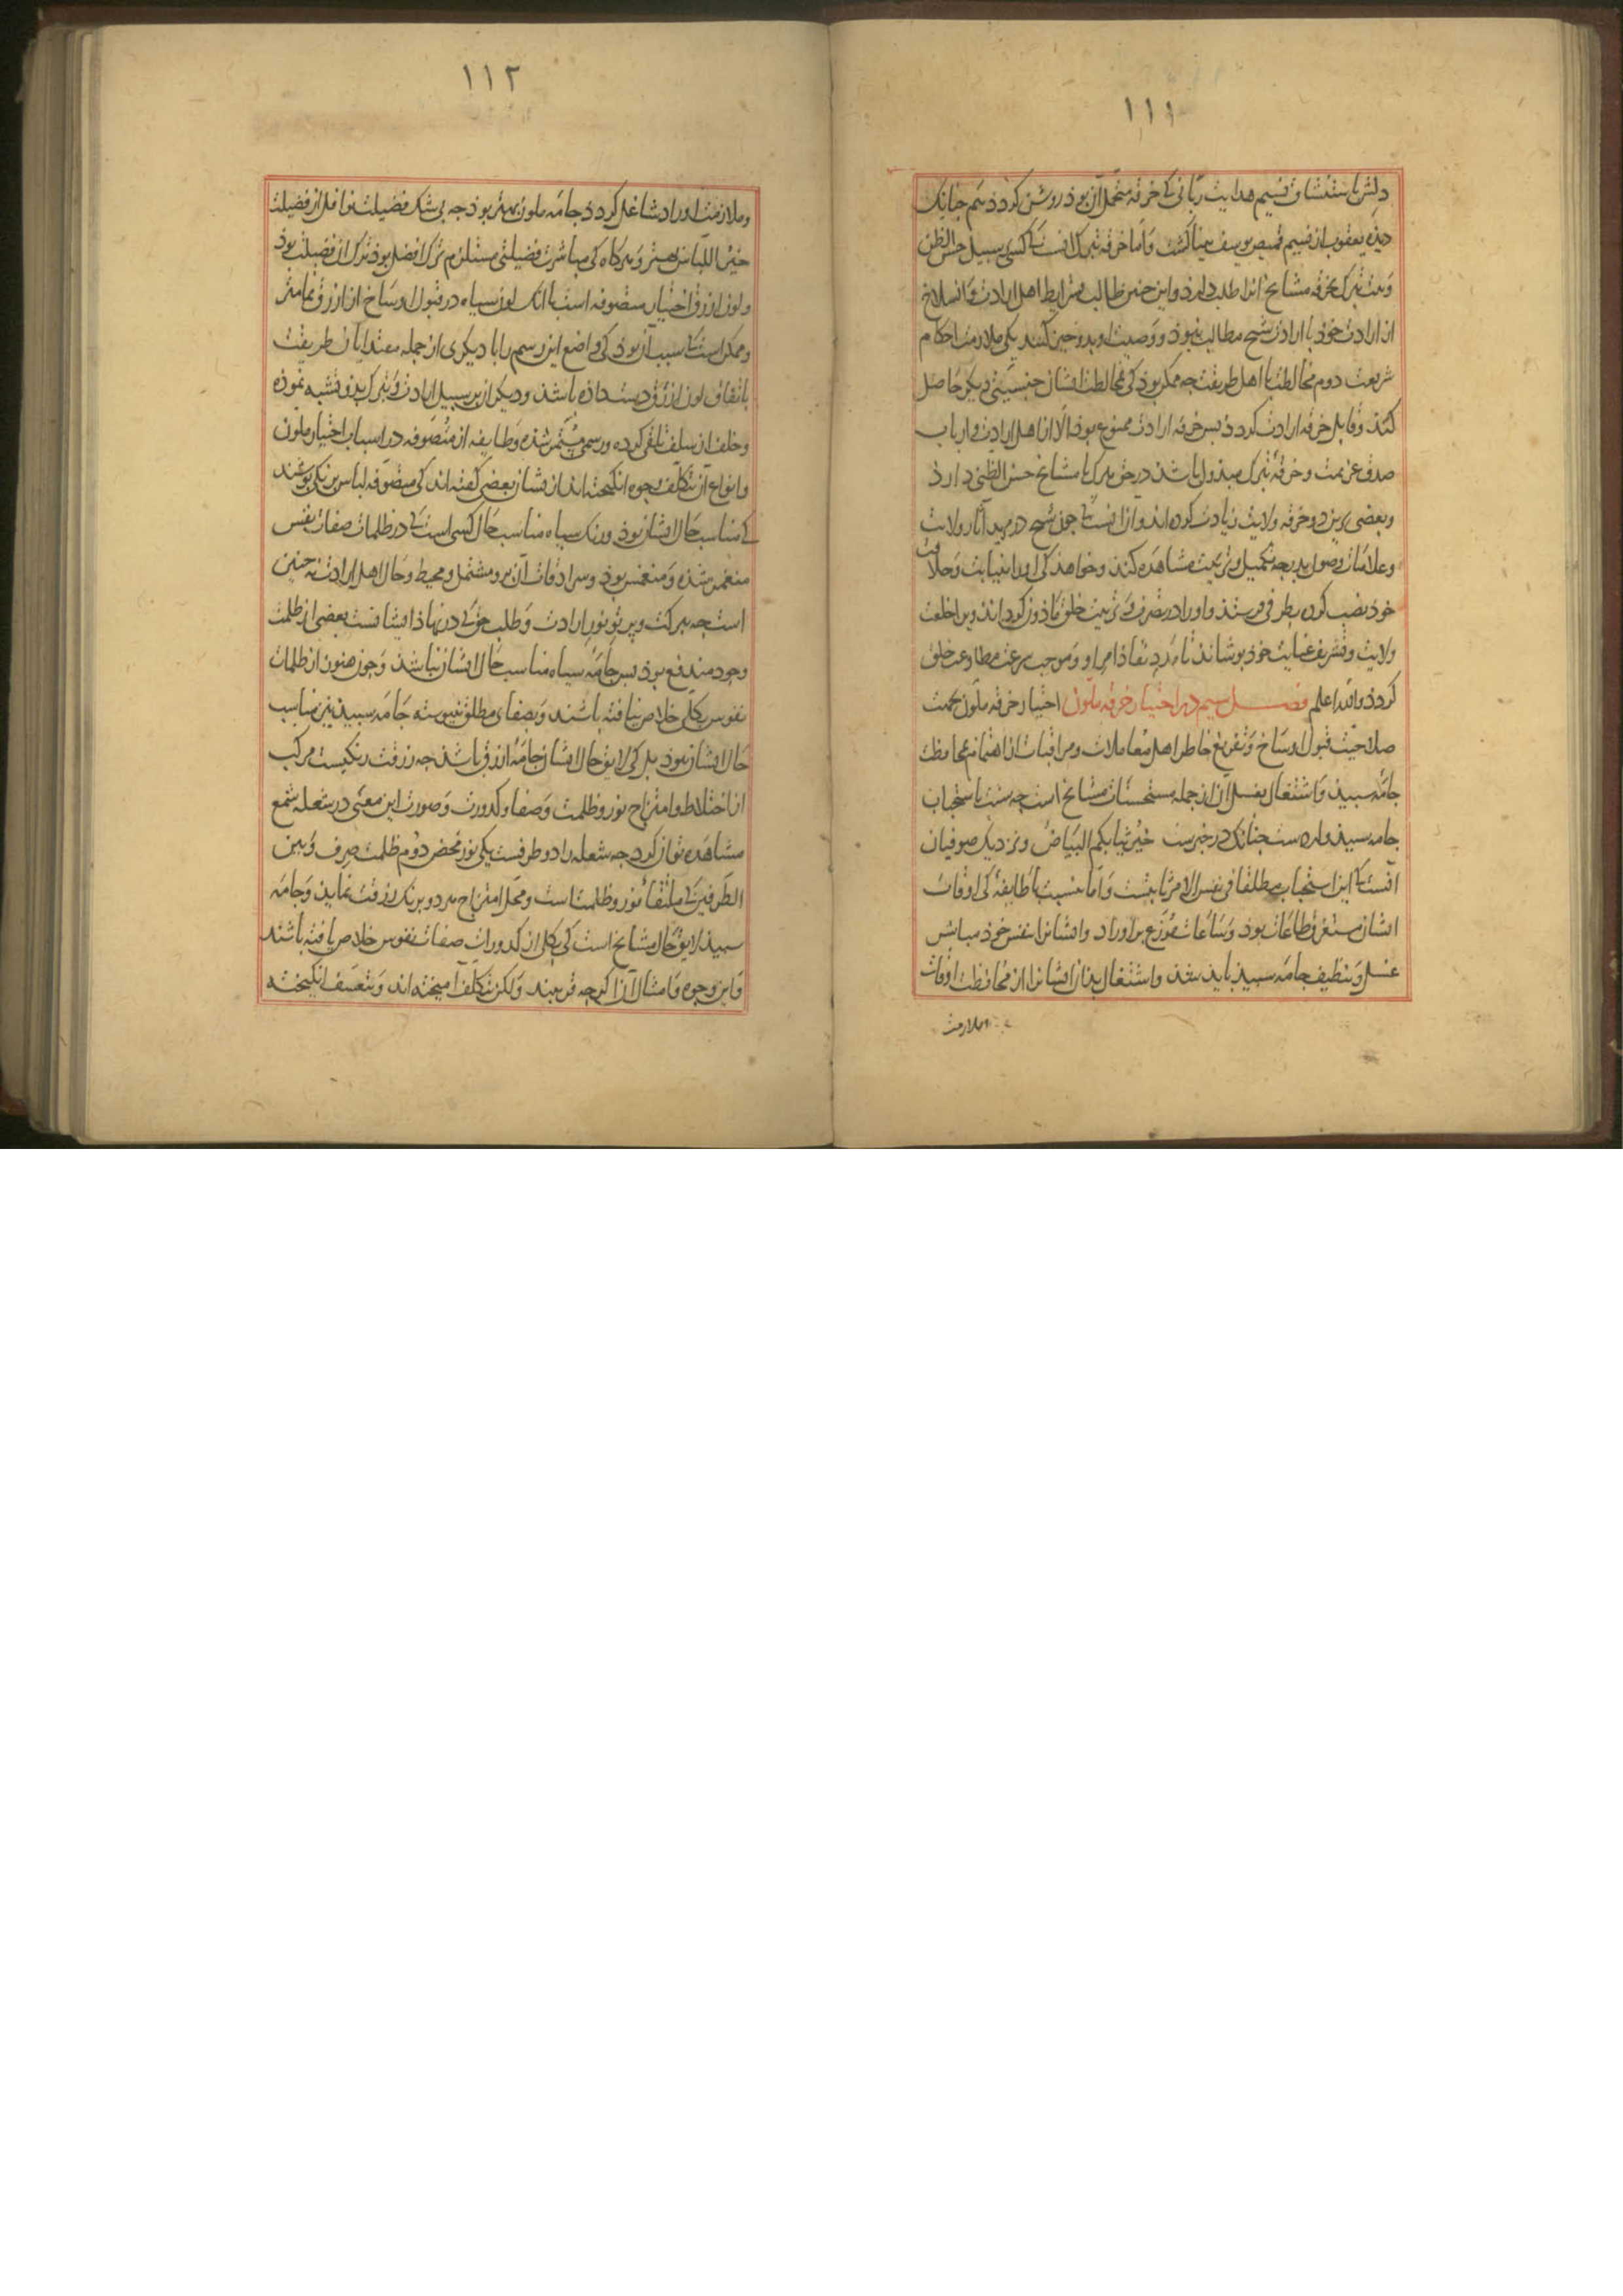 ۱۱۱
دلش باستنشاق نسیم هدایت ربانی کی خرقه متحمل آن بوذ روشن کردذ هم جنانک
دیذه یعقوب از نسیم قمیص یوسف بینا کشت وَاَما خرقه تبرک آنست کی کسی بر سبیل حسن الظن
وَنیت تبرک بخرقه مشایخ آنرا طلب دارذ واین جنین طالب بشرایط اهل ارادت وَانسلاخ
از ارادت خوذ با ارادت شیخ مطالب نبوذ ووَصیت او بدو جیز کنند یکی ملازمت احکام
شریعت دوم مخالطت با اهل طریقت جه ممکن بوذ کی مخالطت ایشان جنسیتی دیکر حَاصل
کنذ وقابل خرقه ارادت کردذ بس خرقه ارادت ممنوع بوذ الا از اهل ارادت وارباب
صدق عزیمت وخرقهٔ تبرک مبذول باشذ در حق هرک با مشایخ حسن الظنی دارذ
وبعضی برین دو خرقه ولایت زیادت کرده اند وآن آنست کی جون شیخ در مرید آثار ولایت
وعلامَات وصول بدرجه تکمیل وتربیت مشاهَده کنذ وخواهذ کی اورا بنیابت وَخلافت
خوذ نصب کرده بطرفی فرستذ واورا در تصرف وَتربیت خلق مَاذون کرداند ویرا خلعت
ولایت وتشریف عنایت خوذ بوشانذ تا مَدَدِ نفاذ امر او وَموجب سرعت مطاوعت خلق
کردذ والله اعلم فصـــل سیم در اختیار خرقه ملون اختیار خرقه ملون بجهت
صلاحیت قبول اوسَاخ وَتفریغ خاطر اهل مُعاملات ومراقبات از اهتمام بمحافظت
جامَهٔ سبیذ وَاشتغال بغسل آن از جمله مستحسنات مشایخ است جه سنت باستحباب
جامه سبیذ وارده ست جنانک در خبرست خیرُ ثیابکم البَیَاضُ ونزدیک صوفیان
آنست کی این استحباب مطلقا فی نفس الامر ثابتست وَاَمَّا بنسبت با طَایفهٔ کی اوقات
ایشان مستغرق طاعَات بوذ وَسَاعَات مُوَزَّع بر اوراد وایشانرا بنفس خوذ مباشر
غسل وَتنظیف جامَه سبیذ بایذ شذ واشتغال بذان ایشانرا از مُحافظت اوقات
وملازمت
۱۱۲
وملازمت اوراد شاغل کردذ جامَه ملون بهتر بوذ جه بی شک فضیلت نوافل از فضیلت
خیر اللباس بهتر وَهرکاه کی مباشرت فضیلتی مستلزم ترک افضل بوذ ترک آن فضیلت بوذ
ولون ازرق اختیار متصوفه است با آنک لون سیاه در قبول اوسَاخ از ازرق تمامتر
وممکن است کی سبب آن بوذ کی واضع این رسم را یا دیکری از جمله مقتدایان طریقت
باتفاق لون ازرق دست داذه باشذ ودیکران بر سبیل ارادت وَتبرک بذو تشبه نموذه
وخلف از سلف تلقی کرده ورسمی مُستمر شذه وَطایفه از متصَوفه در اسباب اختیار ملون
وانواع آن تکلف وجوه انکیخته اند از ایشان بعضی کفته اند کی متصَوفه لباس برنکی بوشند
کی مناسب حَال ایشان بوذ ورنک سیاه مناسب حَال کسی است کی در ظلمات صفات نفس
منغمر شذه وَمنغمس بوذ وسرادقات آن برو مشتمل ومحیط وحَال اهل ارادت نه جنین
است جه ببرکت وپرتو نور ارادت وَطلب حق کی در نهاذ ایشانست بعضی از ظلمت
وجود مندفع بوذ بس جامَهٔ سیاه مناسب حَال ایشان نباشذ وَجون هنوز از ظلمات
نفوس بکلی خلاص نیافته باشند وَبصفای مطلق نبیوسته جَامَه سبیذ نیز مناسب
حَال ایشان نبوذ بل کی لایق حال ایشان جامَهٔ ازرق باشذ جه زرقت رنکیست مرکب
از اختلاط وامتزاج نور وظلمت وَصفا وکدورت وَصورت این معنی در شعلهٔ شمع
مشاهَده توان کرد جه شعله را دو طرفست یکی نور محض دوُم ظلمت صِرف وَبین
الطرفین کی ملتقاءِ نور وظلمت است ومَحلِّ امتزاج هر دو برنک زرقت نمایذ وَجامَه
سبیذ لایق حَال مشایخ است کی بکلی از کدورات صفات نفوس خلاص یافته باشند
وَاین وجوه وَامثال آن اکرجه قریبند وَلکن بتکلف آمیخته اند وَبتعسف انکیخته